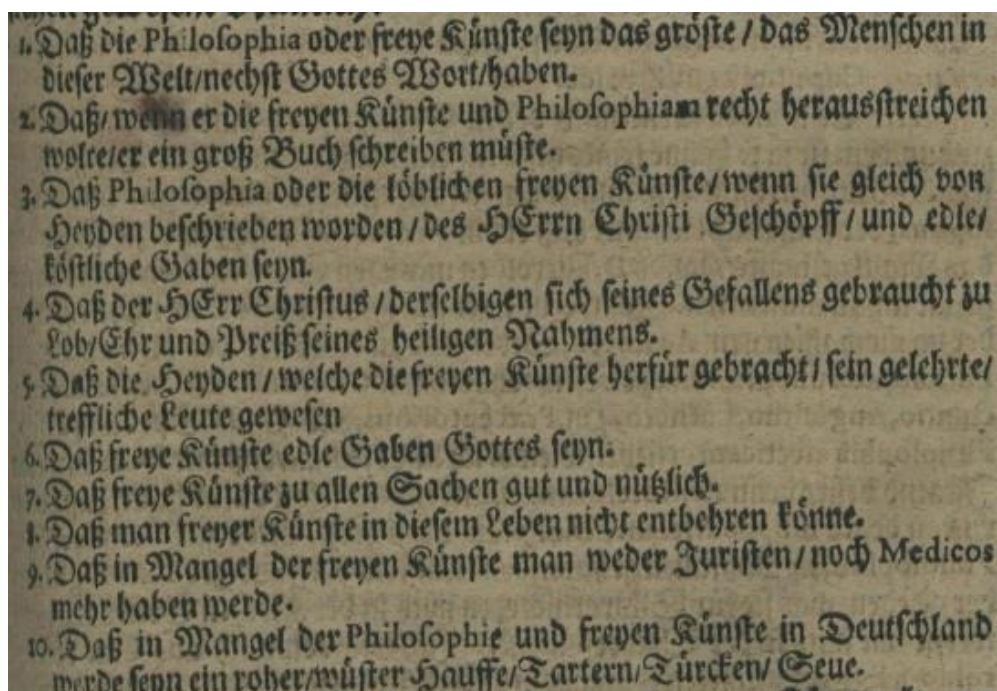 1. Daß die Philosophia oder freye Künste seyn das gröste / das Menschen in
dieser Welt/nechst Gottes Wort/haben.
2. Daß/ wenn er die freyen Künste und Philosophiam recht herausstreichen
wolte/er ein groß Buch schreiben müste.
3. Daß Philosophia oder die löblichen freyen Künste/wenn sie gleich von
Heyden beschrieben worden / des HErrn Christi Geschöpff / und edle/
köstliche Gaben seyn.
4. Daß der HErr Christus / derselbigen sich seines Gefallens gebraucht zu
Lob/Ehr und Preiß seines heiligen Nahmens.
5. Daß die Heyden / welche die freyen Künste herfür gebracht / fein gelehrte/
treffliche Leute gewesen
6. Daß freye Künste edle Gaben Gottes seyn.
7. Daß freye Künste zu allen Sachen gut und nützlich.
8. Daß man freyer Künste in diesem Leben nicht entbehren könne.
9. Daß in Mangel der freyen Künste man weder Juristen / noch Medicos
mehr haben werde.
10. Daß in Mangel der Philosophie und freyen Künste in Deutschland
werde seyn ein roher/wüster Hauffe/Tartern/Türcken/ Seue.